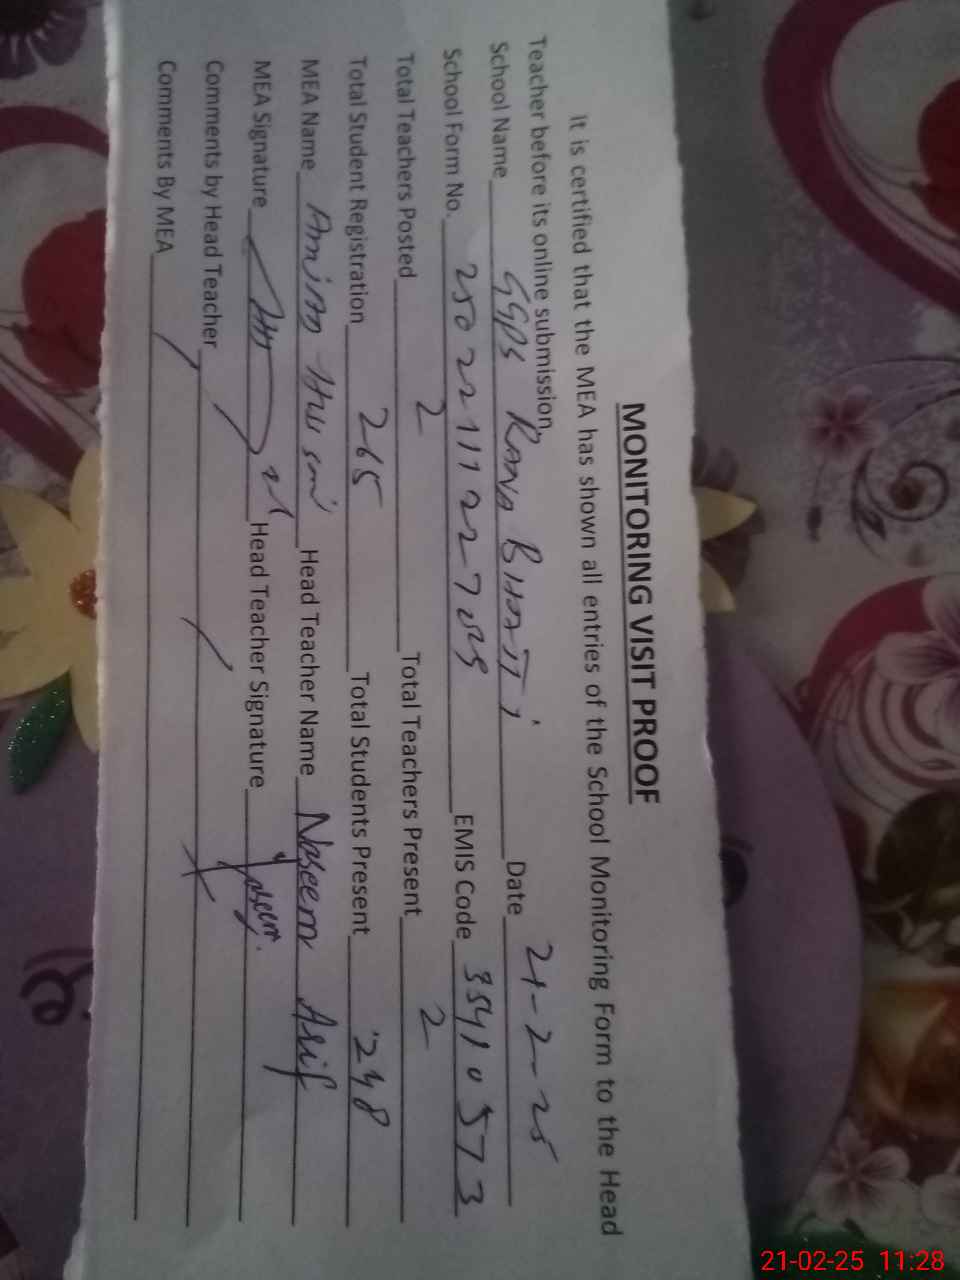 MONITORING VISIT PROOF
It is certified that the MEA has shown all entries of the School Monitoring Form to the Head
Teacher before its online submission,
School Name GGPS Rana Bhatti Date 21-2-25
School Form No. EMIS Code 35410573
Total Teachers Posted 2 Total Teachers Present 2
Total Student Registration 265 Total Students Present 248
MEA Name Head Teacher Name Naseem Asif
MEA Signature Head Teacher Signature
Comments by Head Teacher
Comments By MEA
21-02-25 11:28